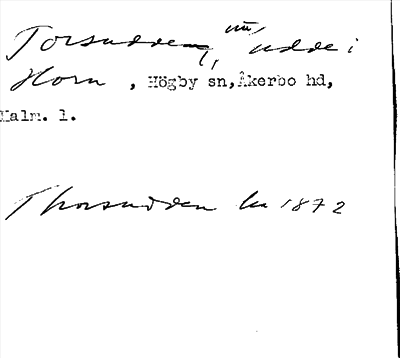 Torsudden, udde i
Horn, Högby sn, Åkerbo hd,
Kalm. l.
Thorsudden 1872